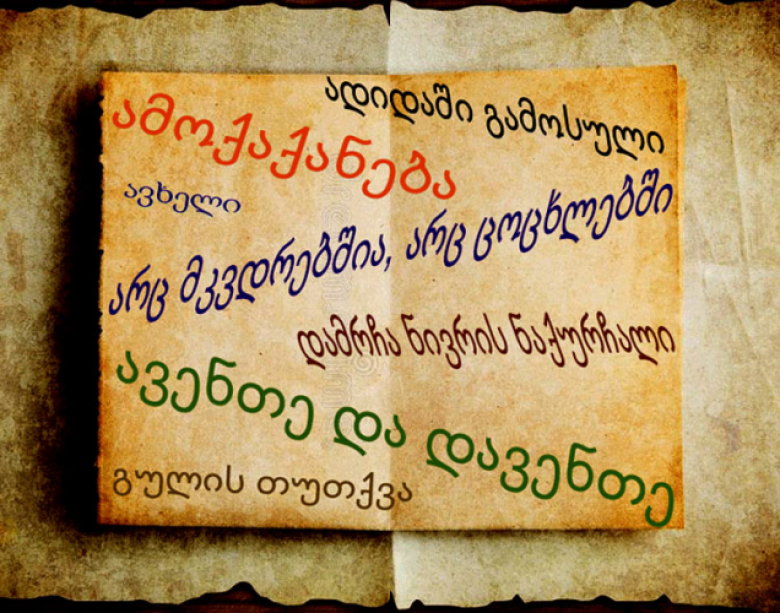 ადიდაში გამოსული
ამოქაქანება
ავხელი
არც მკვდრებშია, არც ცოცხლებში
დამრჩა ნივრის ნაქურჩალი
ავენთე და დავენთე
გულის თუთქვა